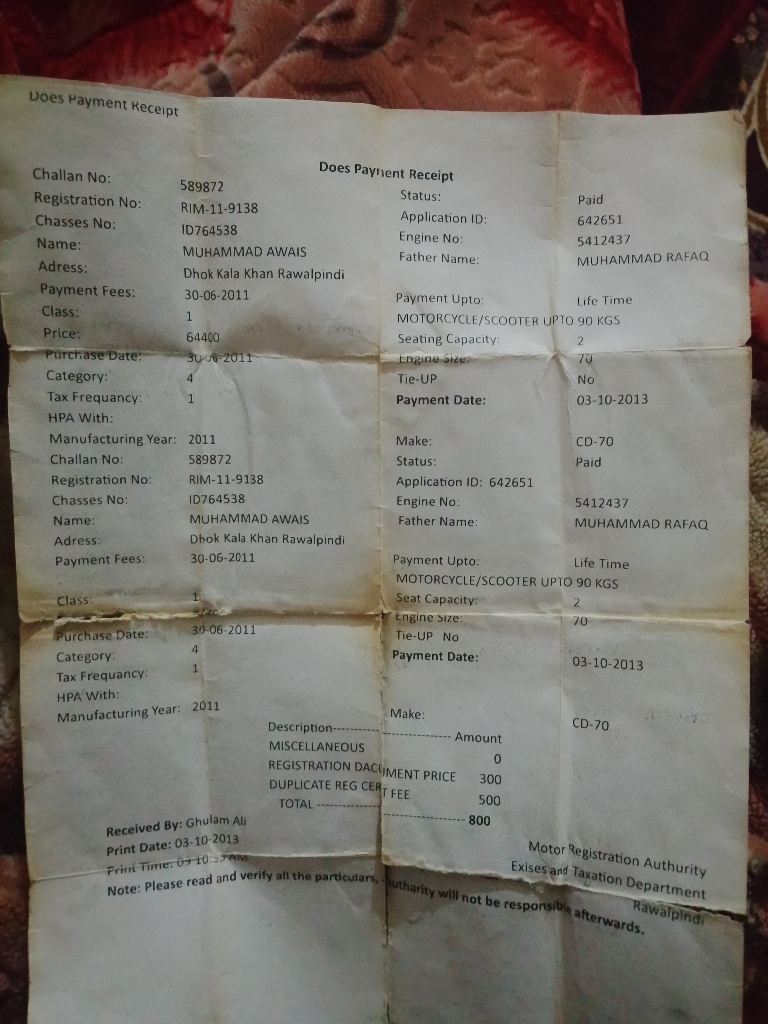 Does Payment Receipt
Does Payment Receipt
Challan No: 589872 Status: Paid
Registration No: RIM-11-9138 Application ID: 642651
Chasses No: ID764538 Engine No: 5412437
Name: MUHAMMAD AWAIS Father Name: MUHAMMAD RAFAQ
Adress: Dhok Kala Khan Rawalpindi
Payment Fees: 30-06-2011 Payment Upto: Life Time
Class: 1 MOTORCYCLE/SCOOTER UPTO 90 KGS
Price: 64400 Seating Capacity: 2
Purchase Date: 30-06-2011 Engine Size: 70
Category: 4 Tie-UP No
Tax Frequancy: 1 Payment Date: 03-10-2013
HPA With:
Manufacturing Year: 2011 Make: CD-70
Challan No: 589872 Status: Paid
Registration No: RIM-11-9138 Application ID: 642651
Chasses No: ID764538 Engine No: 5412437
Name: MUHAMMAD AWAIS Father Name: MUHAMMAD RAFAQ
Adress: Dhok Kala Khan Rawalpindi
Payment Fees: 30-06-2011 Payment Upto: Life Time
MOTORCYCLE/SCOOTER UPTO 90 KGS
Class: 1 Seat Capacity: 2
Engine Size: 70
Purchase Date: 30-06-2011 Tie-UP No
Category: 4 Payment Date: 03-10-2013
Tax Frequancy: 1
HPA With:
Manufacturing Year: 2011 Make: CD-70
Description-------------------------------- Amount
MISCELLANEOUS 0
REGISTRATION DACUMENT PRICE 300
DUPLICATE REG CERT FEE 500
TOTAL ---------------------------------- 800
Received By: Ghulam Ali
Print Date: 03-10-2013
Print Time: 03 10:53 AM
Motor Registration Authurity
Exises and Taxation Department
Rawalpindi
Note: Please read and verify all the particulars, utharity will not be responsible afterwards.